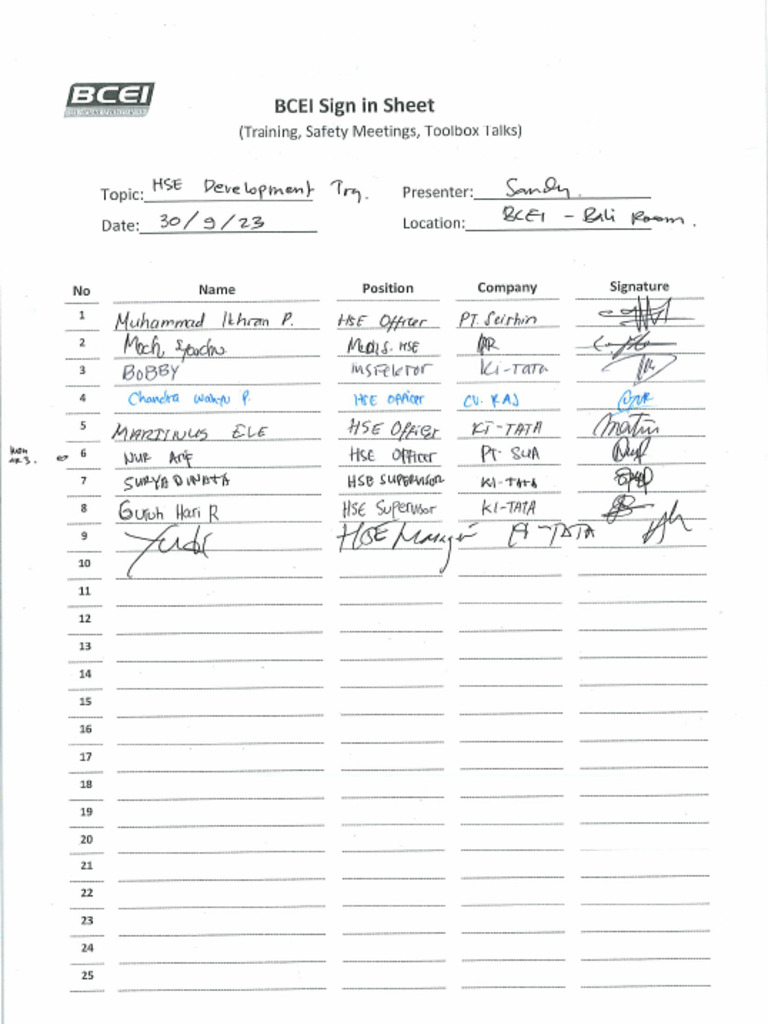 BCEI
BCEI Sign in Sheet
(Training, Safety Meetings, Toolbox Talks)
Topic: HSE Development Trg. Presenter: Sandy.
Date: 30/9/23 Location: BCEI - Bali Room.
No Name Position Company Signature
1 Muhammad Ikhran P. HSE Officer PT. Seirhin
2 Moch. HSE
3 BOBBY insrektor Ki-TATA
4 Chandra wahyu P. HSE OFFICER CV. RAJ
5 MARTINUS ELE HSE Officer KI-TATA Martin
6 NUR Arif HSE Officer PT. SUA
7 SURYA DINATA HSE SUPERVISOR KI-TATA
8 Guruh Hari R HSE Supervisor KI-TATA
9 HSE Manager KI-TATA
10
11
12
13
14
15
16
17
18
19
20
21
22
23
24
25